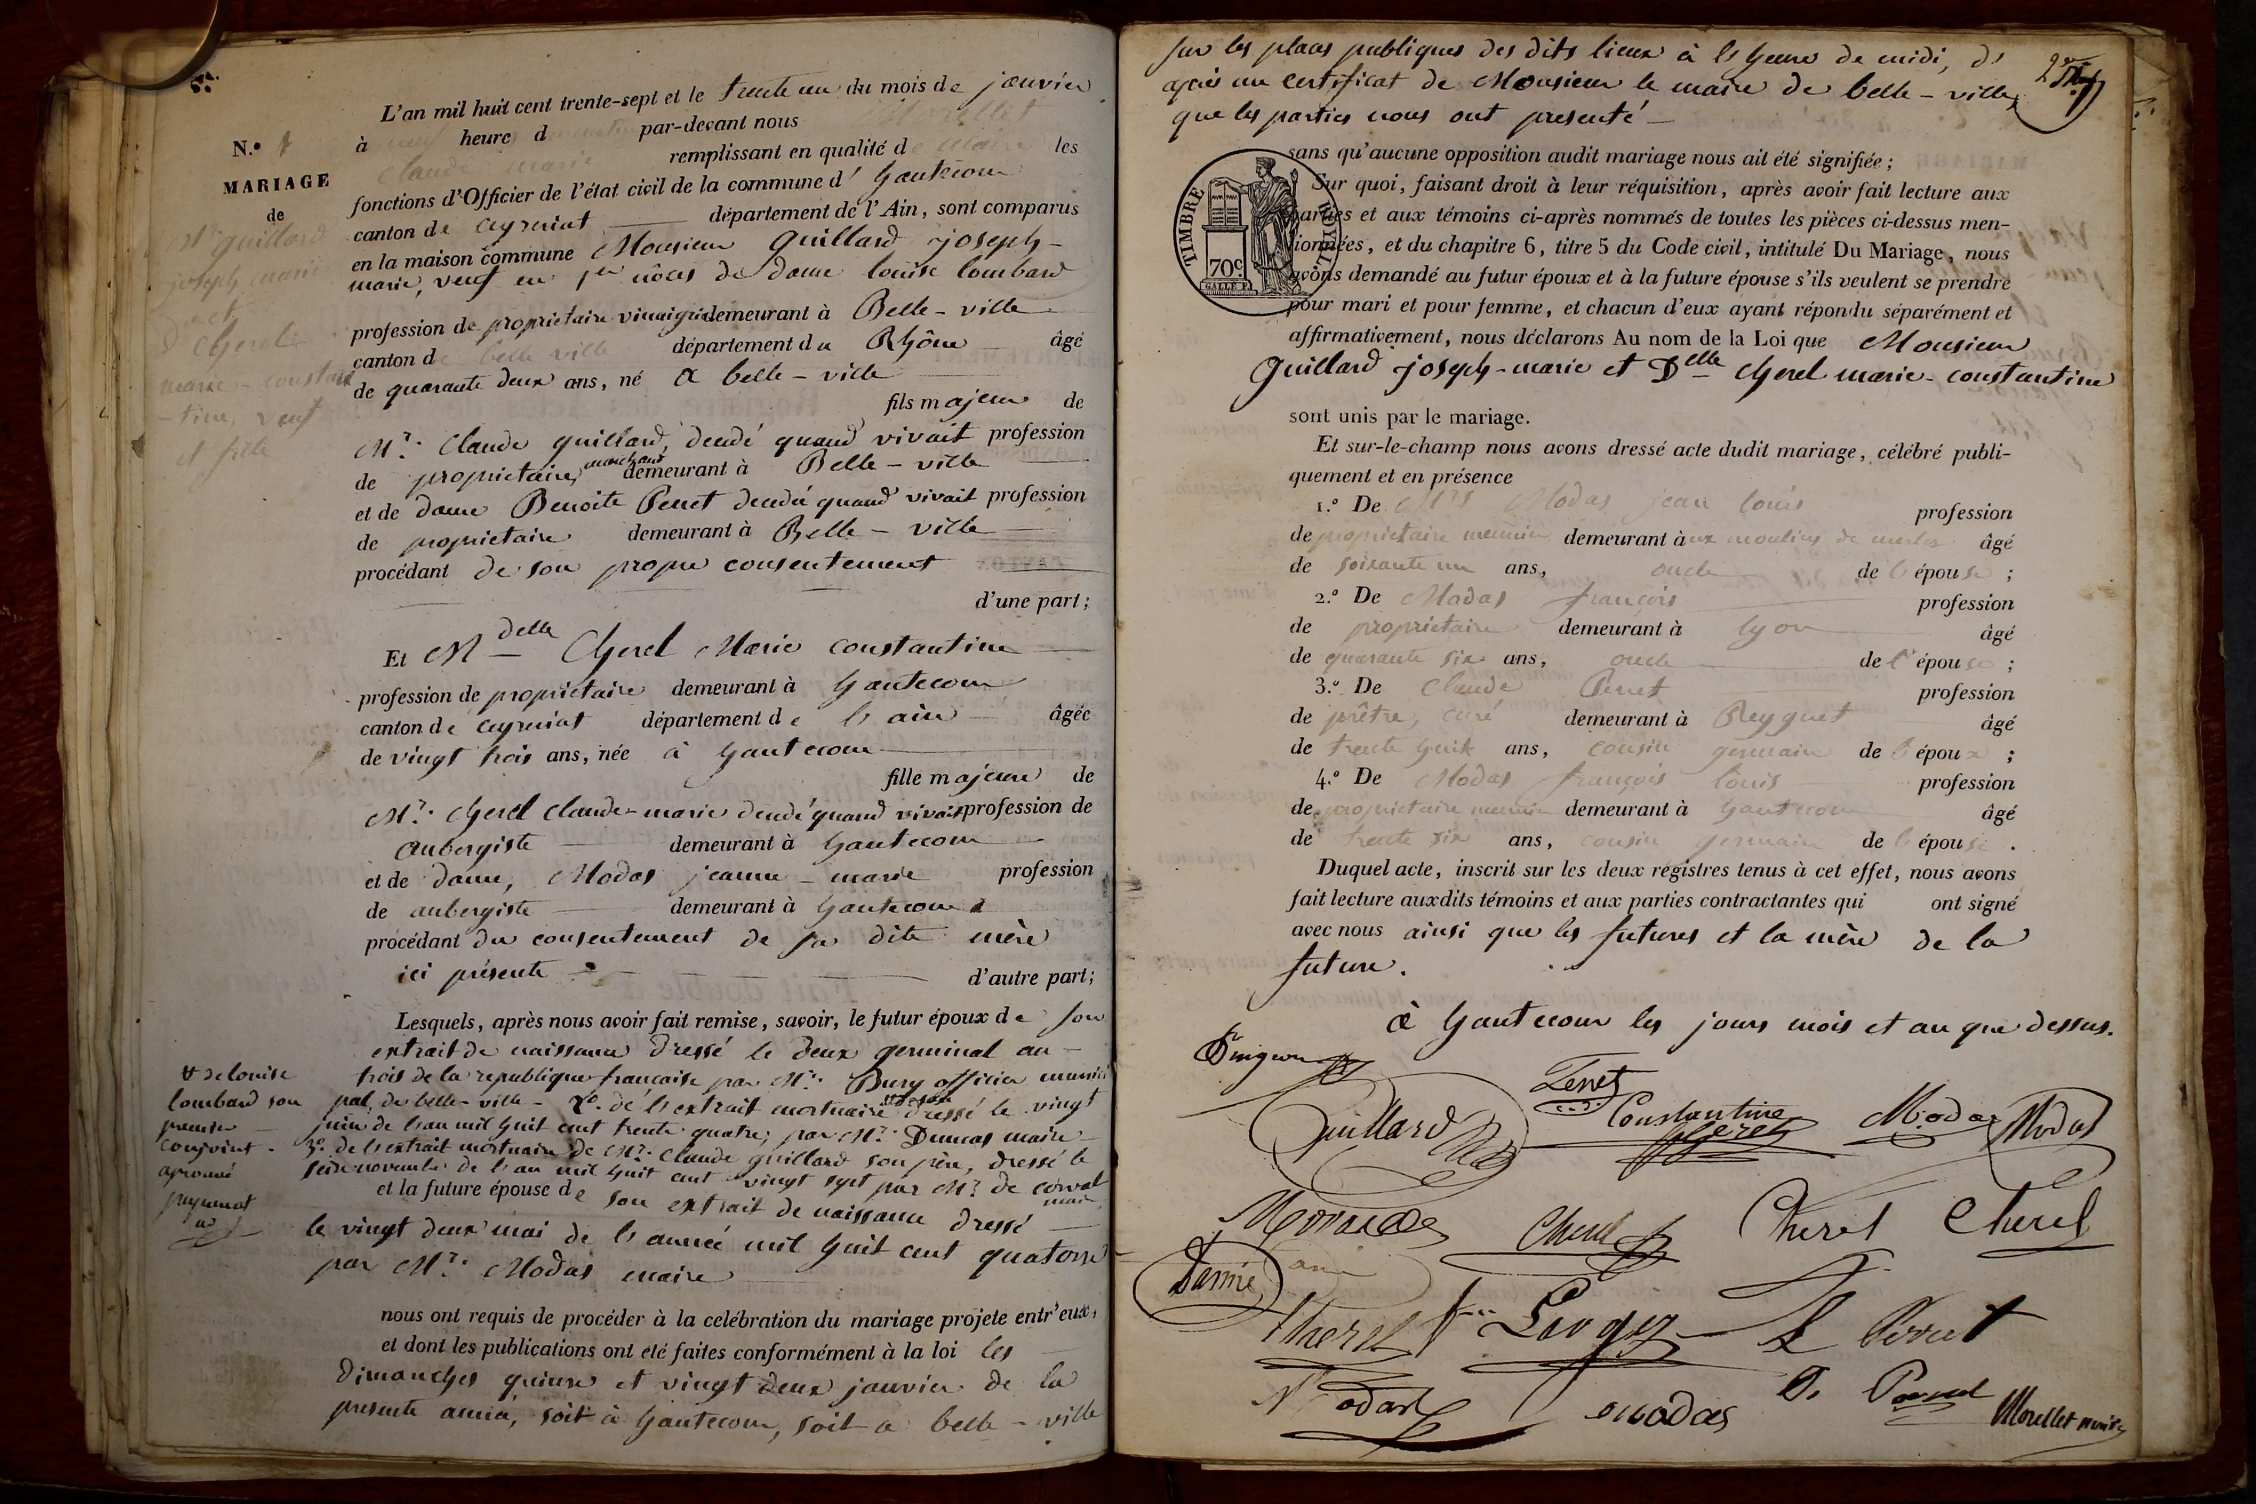 L'an mil huit cent trente-sept et le trente un du mois de janvier
à neuf heures du matin par-devant nous Morellet
Claude marie remplissant en qualité de maire les
fonctions d'Officier de l'état civil de la commune d' hautecour
canton de ceyzeriat département de l'Ain, sont comparus
en la maison commune Monsieur Guillard joseph-
marie, veuf en 1er nôces de dame louise lombard
profession de propriétaire vinaigrier demeurant à Belle-ville
canton de belle ville département du Rhône âgé
de quarante deux ans, né à belle-ville
fils majeur de
Mr. Claude guillard, décédé quand vivait profession
de propriétaire, marchand demeurant à Belle-ville
et de dame Benoite Perret décédée quand vivait profession
de propriétaire demeurant à Belle-ville
procédant de son propre consentement
d'une part;
Et Mdelle Cherel Marie constantine
profession de propriétaire demeurant à hautecour
canton de ceyzeriat département de l'ain âgée
de vingt trois ans, née à hautecour
fille majeure de
Mr. Cherel Claude-marie décédé quand vivait profession de
aubergiste demeurant à hautecour
et de dame, Modas jeanne-marie profession
de aubergiste demeurant à hautecour
procédant du consentement de sa dite mère
ici présente d'autre part;
Lesquels, après nous avoir fait remise, savoir, le futur époux de son
extrait de naissance dressé le deux germinal an
trois de la republique francaise par Mr. Bury officier munici
pal, de belle-ville - 2o. de l'extrait mortuaire dressé le vingt
juin de l'an mil huit cent trente quatre, par Mr. Dumas maire
3o. de l'extrait mortuaire de Mr. Claude guillard son père, dressé le
seize novembre de l'an mil huit cent vingt sept par Mr. de corval
maire
et la future épouse de son extrait de naissance dressé
le vingt deux mai de l'année mil huit cent quatorze
par Mr. Modas maire
nous ont requis de procéder à la celébration du mariage projete entr'eux,
et dont les publications ont été faites conformément à la loi les
dimanches quinze et vingt deux janvier de la
presente année, soit à hautecour, soit a belle-ville
N.o
MARIAGE
de
Mr guillard
joseph marie
et
Cherel
marie-constan
-tine, veuf
et fille
de louise
lombard son
premier
conjoint.
aprouvé
sur les places publiques des dits lieux à l'heure de midi, d'
après un certificat de Monsieur le maire de belle-ville,
que les parties nous ont presenté
TIMBRE ROYAL
70c
sans qu'aucune opposition audit mariage nous ait été signifiée;
Sur quoi, faisant droit à leur réquisition, après avoir fait lecture aux
parties et aux témoins ci-après nommés de toutes les pièces ci-dessus men-
tionnées, et du chapitre 6, titre 5 du Code civil, intitulé Du Mariage, nous
avons demandé au futur époux et à la future épouse s'ils veulent se prendre
pour mari et pour femme, et chacun d'eux ayant répondu séparément et
affirmativement, nous déclarons Au nom de la Loi que Monsieur
Guillard joseph-marie et Delle Cherel marie-constantine
sont unis par le mariage.
Et sur-le-champ nous avons dressé acte dudit mariage, célébré publi-
quement et en présence
1.o De Mrs Modas jean louis profession
de propriétaire meunier demeurant aux moulins de âgé
de soixante un ans, oncle de l'épouse;
2.o De Modas françois profession
de propriétaire demeurant à lyon âgé
de quarante six ans, oncle de l'épouse;
3.o De Claude Perret profession
de prêtre, curé demeurant à âgé
de trente huit ans, cousin germain de l'époux;
4.o De Modas françois louis profession
de propriétaire meunier demeurant à hautecour âgé
de trente six ans, cousin germain de l'épouse.
Duquel acte, inscrit sur les deux régistres tenus à cet effet, nous avons
fait lecture auxdits témoins et aux parties contractantes qui ont signé
avec nous ainsi que les futures et la mère de la
future.
à hautecour les jours mois et an que dessus.
Guillard
Constantine Cherel
Modas Modas
Cherel Cherel Cherel
Perret
Modas
modas
Morellet maire